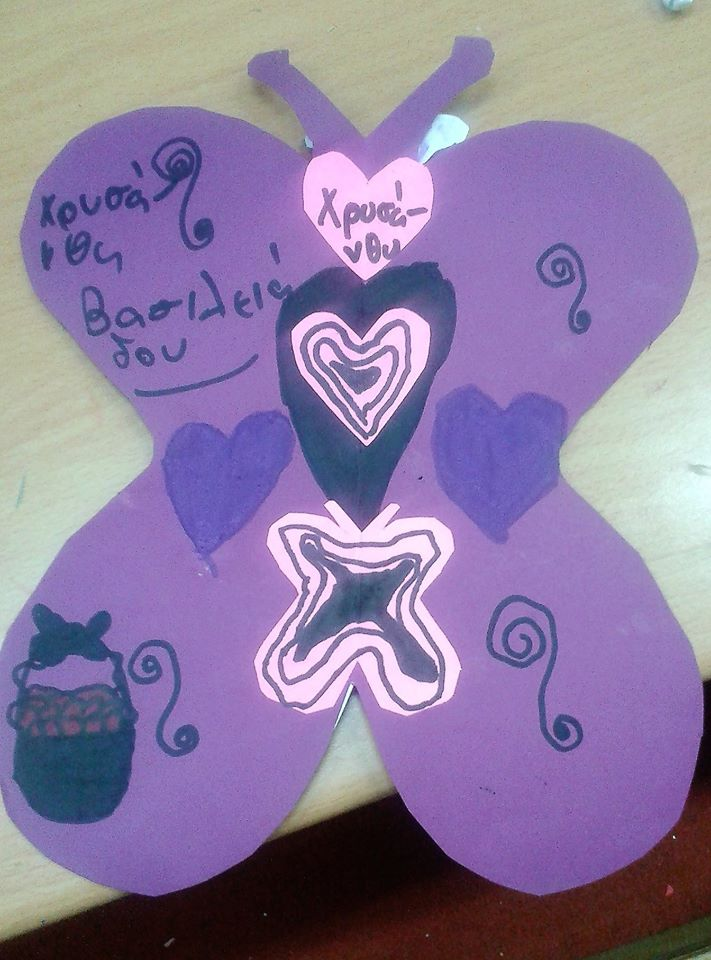 Χρυσά-
νθη
Βασιλειά
δου
Χρυσά-
νθη